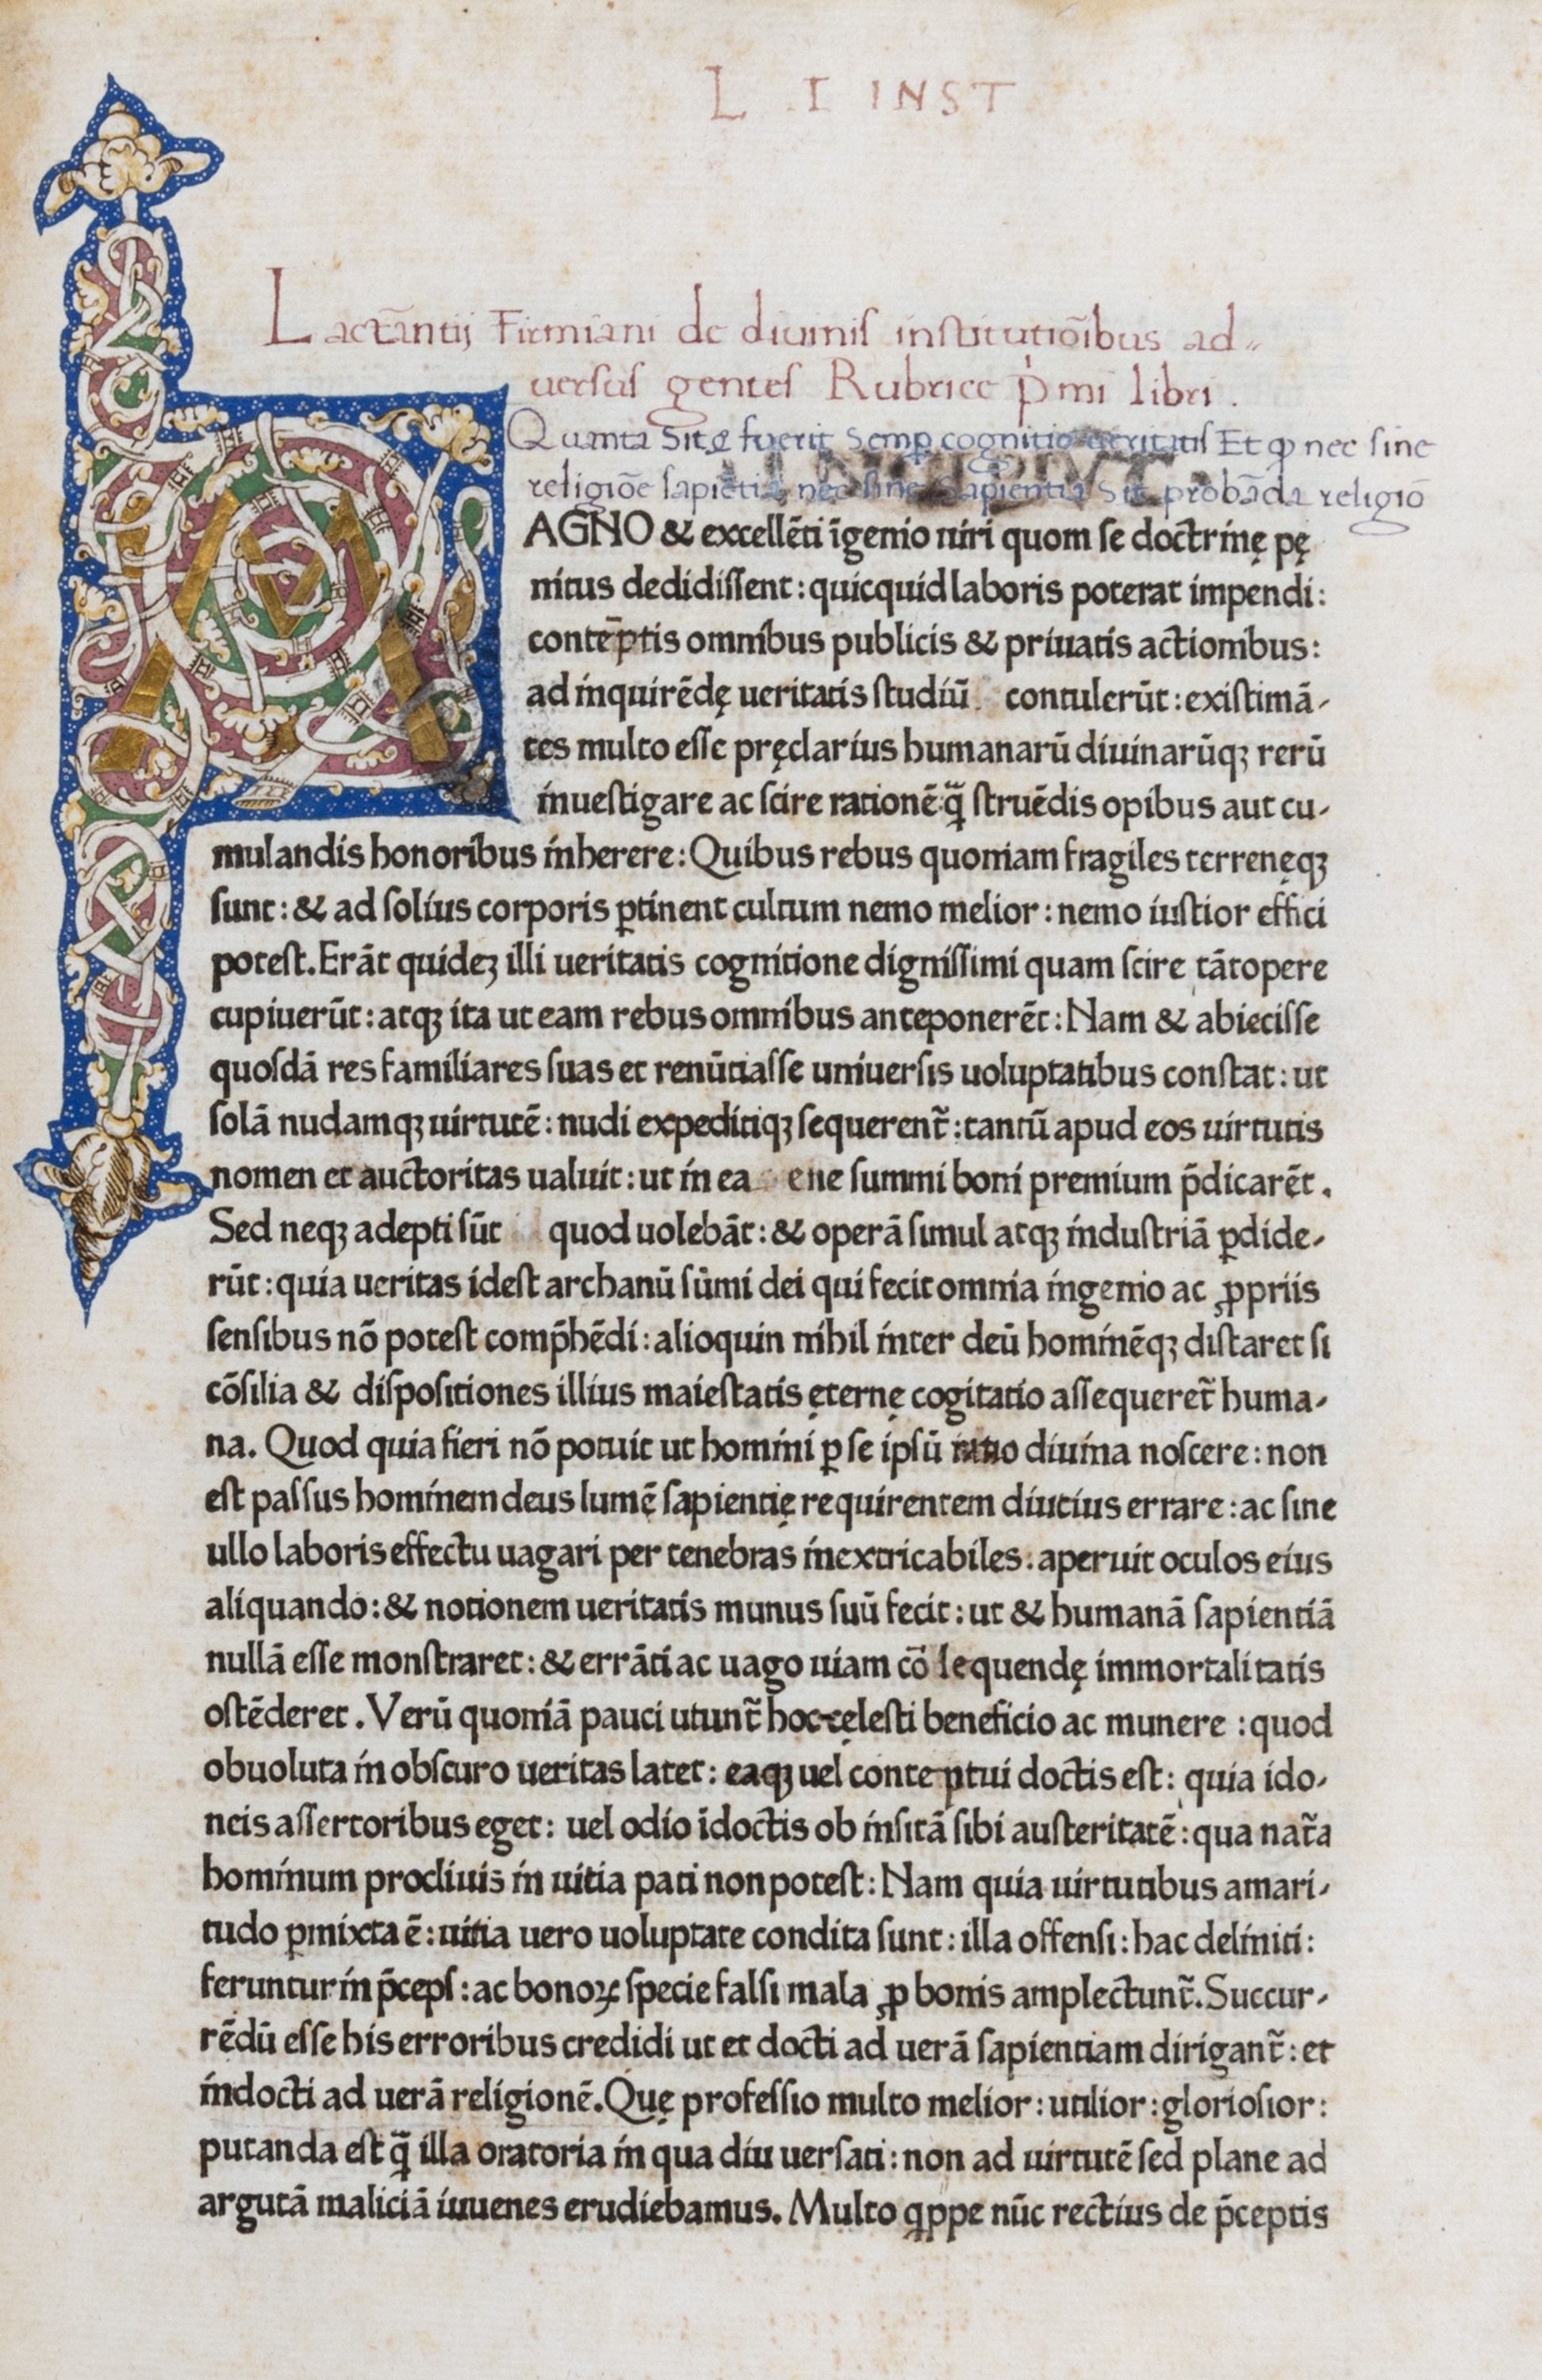 L I INST
Lactãntij Firmiani de diuinis institutiõibus ad„
uersus gentes Rubrice p̃mi libri .
Quanta Sit & fuerit Semꝑ cognitio ueritatis Et ꝙ nec sine
religiõe sapiẽtia nec sine Sapientia Sit probãda religiõ
MAGNO & excellẽti ĩgenio uiri quom se doctrinę pę
nitus dedidissent: quicquid laboris poterat impendi:
contẽptis omnibus publicis & priuatis actionibus:
ad inquirẽdę ueritatis studiũ contulerũt: existimã-
tes multo esse pręclarius humanarũ diuinarũqꝫ rerũ
inuestigare ac scire rationẽ: q̃ struẽdis opibus aut cu-
mulandis honoribus inherere: Quibus rebus quoniam fragiles terrenęqꝫ
sunt: & ad solius corporis ꝑtinent cultum nemo melior: nemo iustior effici
potest. Erãt quideꝫ illi ueritatis cognitione dignissimi quam scire tãtopere
cupiuerũt: atqꝫ ita ut eam rebus omnibus anteponerẽt: Nam & abiecisse
quosdã res familiares suas et renũtiasse uniuersis uoluptatibus constat: ut
solã nudamqꝫ uirtutẽ: nudi expeditiqꝫ sequerent̃: tantũ apud eos uirtutis
nomen et auctoritas ualuit: ut in ea ene summi boni premium p̃dicarẽt.
Sed neqꝫ adepti sũt quod uolebãt: & operã simul atqꝫ industriã ꝑdide-
rũt: quia ueritas idest archanũ sũmi dei qui fecit omnia ingenio ac ꝓpriis
sensibus nõ potest comp̃hẽdi: alioquin nihil inter deũ hominẽqꝫ distaret si
cõsilia & dispositiones illius maiestatis ęternę cogitatio assequeret̃ huma-
na. Quod quia fieri nõ potuit ut homini ꝑ se ipsũ ratio diuina noscere: non
est passus hominem deus lumẽ sapientię requirentem diutius errare: ac sine
ullo laboris effectu uagari per tenebras inextricabiles. aperuit oculos eius
aliquando: & notionem ueritatis munus suũ fecit: ut & humanã sapientiã
nullã esse monstraret: & errãti ac uago uiam cõsequendę immortalitatis
ostẽderet. Verũ quoniã pauci utunt̃ hoc cęlesti beneficio ac munere: quod
obuoluta in obscuro ueritas latet: eaqꝫ uel conteptui doctis est: quia ido-
neis assertoribus eget: uel odio ĩdoctis ob insitã sibi austeritatẽ: qua nat̃a
hominum procliuis in uitia pati non potest: Nam quia uirtutibus amari-
tudo ꝑmixta ẽ: uitia uero uoluptate condita sunt: illa offensi: hac deliniti:
feruntur in p̃ceps: ac bonoꝝ specie falsi mala ꝓ bonis amplectunt̃. Succur-
rẽdũ esse his erroribus credidi ut et docti ad uerã sapientiam dirigant̃: et
indocti ad uerã religionẽ. Quę professio multo melior: utilior: gloriosior:
putanda est q̃ illa oratoria in qua diu uersati: non ad uirtutẽ sed plane ad
argutã maliciã iuuenes erudiebamus. Multo qͥppe nũc rectius de p̃ceptis